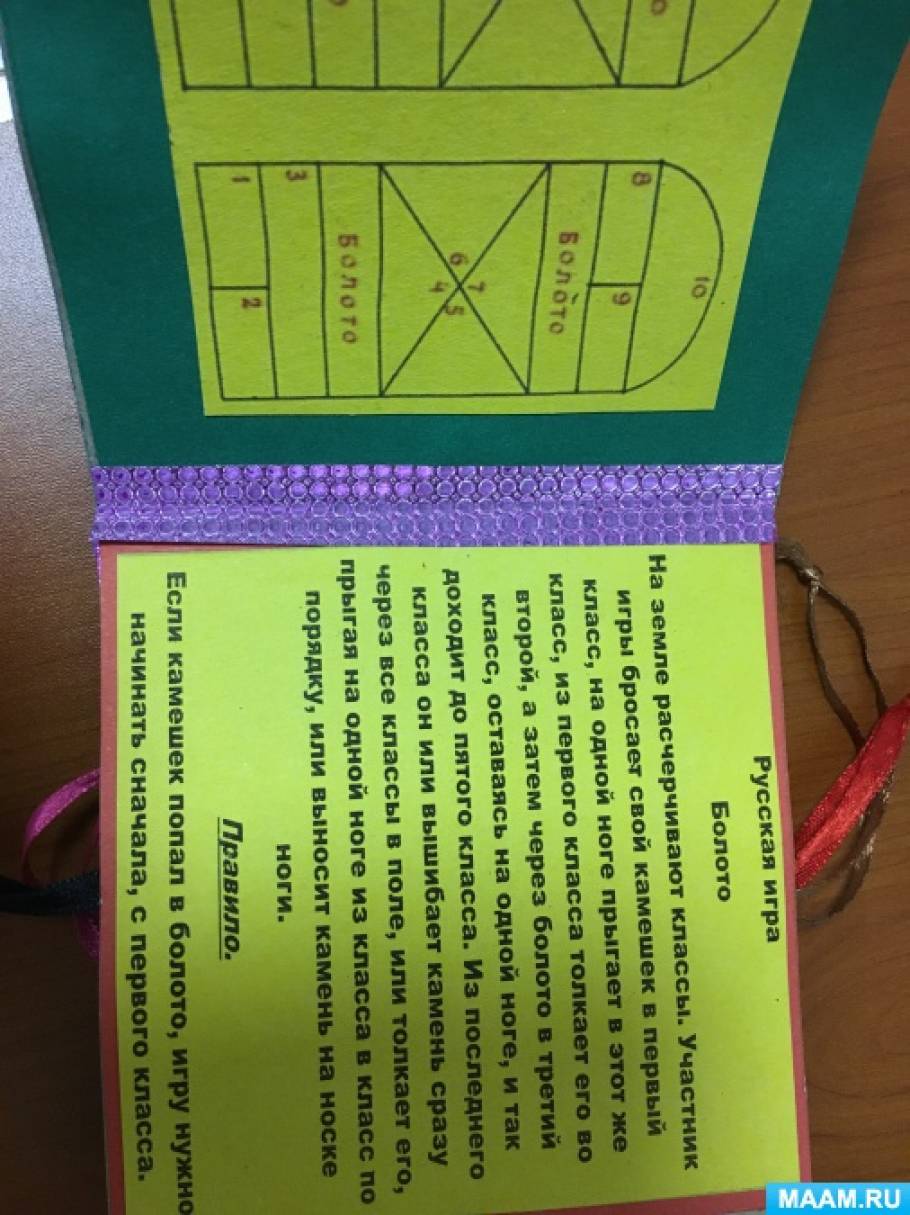 10
8
9
Болото
6
7
4
5
Болото
3
1
2
Русская игра
Болото
На земле расчерчивают классы. Участник
игры бросает свой камешек в первый
класс, на одной ноге прыгает в этот же
класс, из первого класса толкает его во
второй, а затем через болото в третий
класс, оставаясь на одной ноге, и так
доходит до пятого класса. Из последнего
класса он или вышибает камень сразу
через все классы в поле, или толкает его,
прыгая на одной ноге из класса в класс по
порядку, или выносит камень на носке
ноги.
Правило.
Если камешек попал в болото, игру нужно
начинать сначала, с первого класса.
MAAM.RU